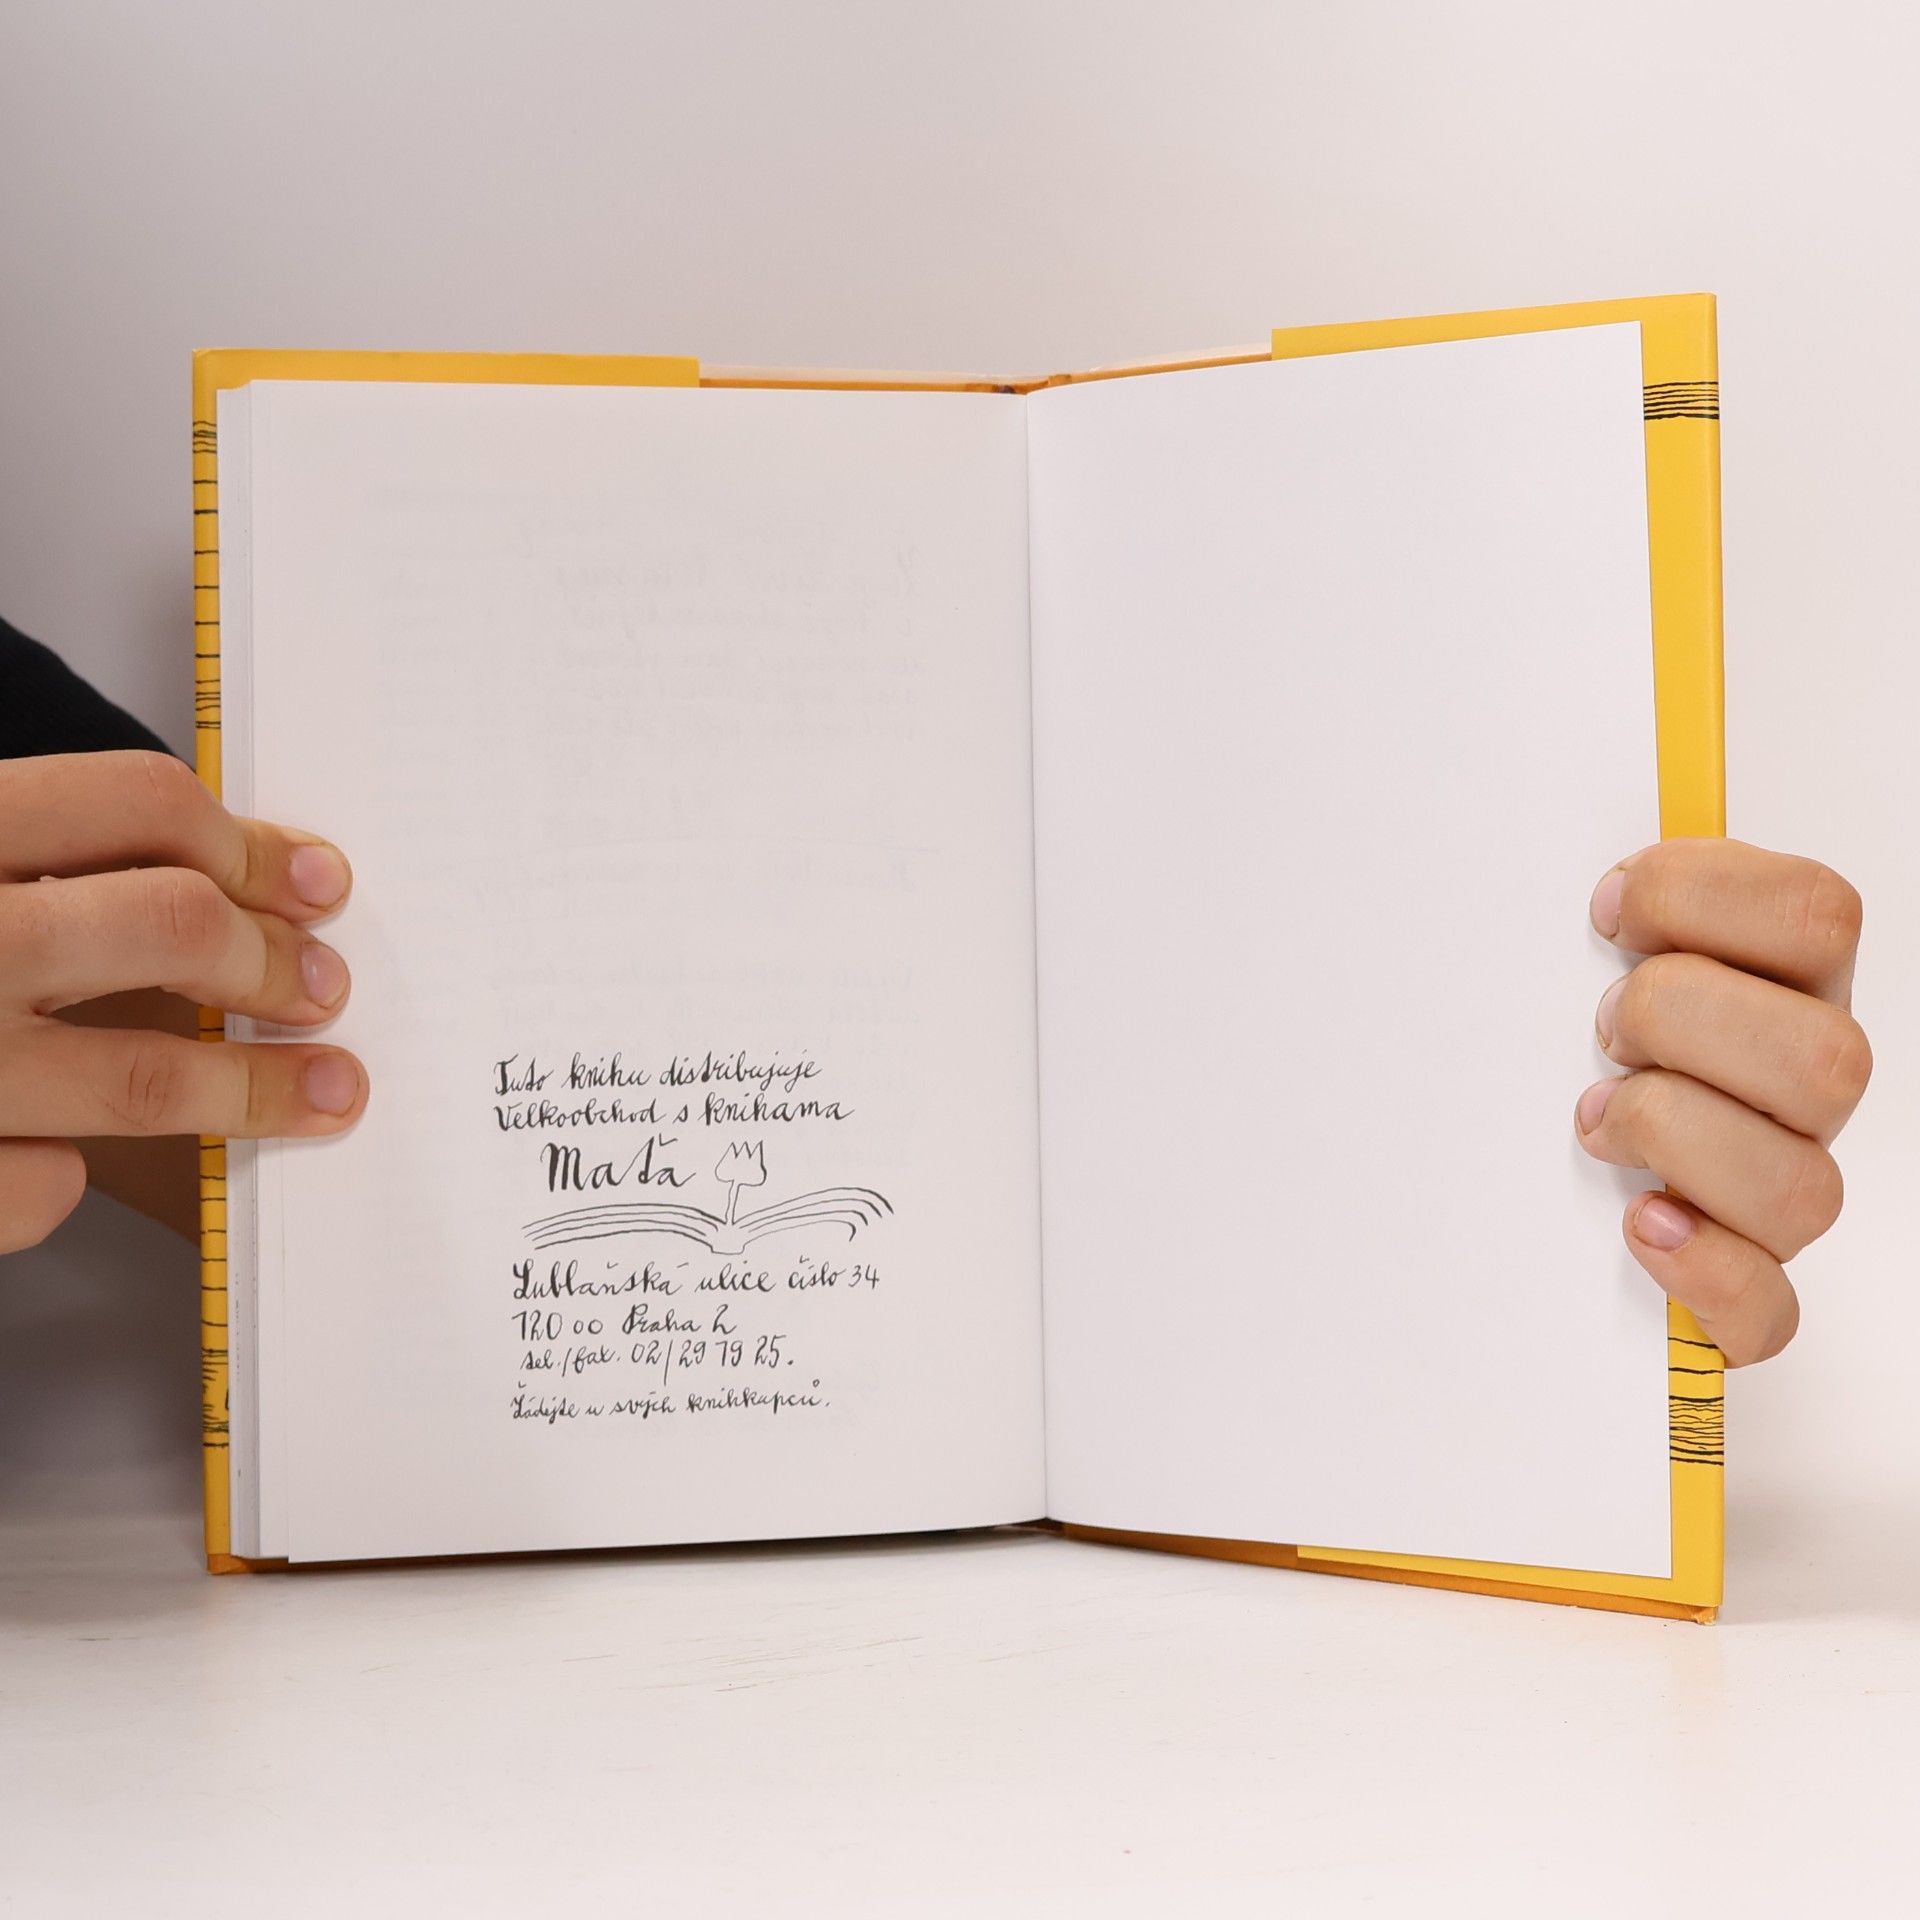 Tuto knihu distribujuje
Velkoobchod s knihama
Maťa
Lublaňská ulice číslo 34
120 00 Praha 2
tel./fax. 02/29 19 25.
Žádejte u svých knihkupců.